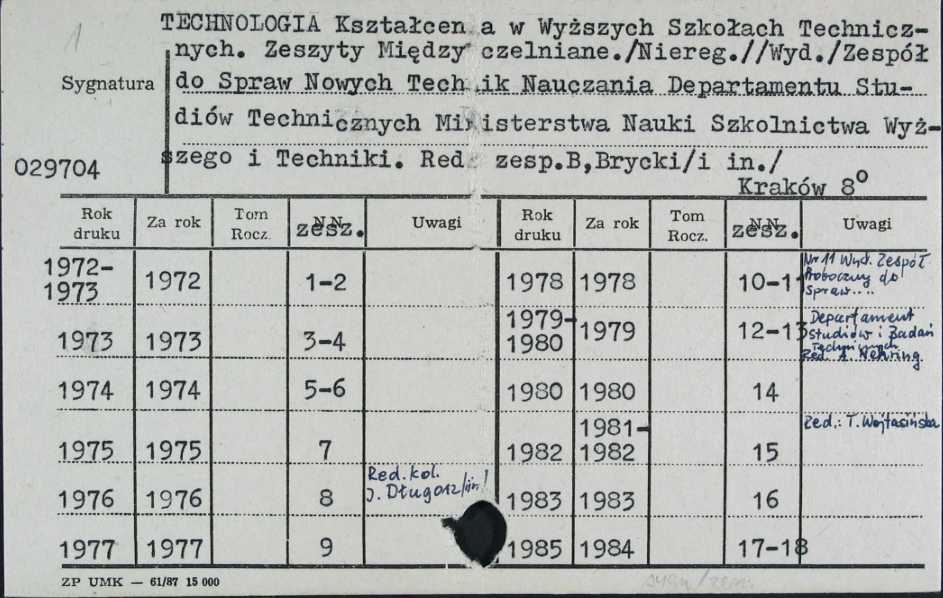 1
TECHNOLOGIA Kształcen a w Wyższych Szkołach Technicz-
nych. Zeszyty Między czelniane./Niereg.//Wyd./Zespół
Sygnatura
do Spraw Nowych Tech ik Nauczania Departamentu Stu-
diów Technicznych Ministerstwa Nauki Szkolnictwa Wyż-
szego i Techniki. Red. zesp.B,Brycki/i in./
029704
Kraków 8°
Rok druku Za rok Tom Rocz. N.N. zesz. Uwagi Rok druku Za rok Tom Rocz. N.N. zesz. Uwagi
1972-1973 1972 1-2 1978 1978 10-11 Nr 11 Wyd. Zespół Roboczy do Spraw....
1973 1973 3-4 1979-1980 1979 12-13 Departament Studiów i Badań Technicznych Red. A. Nehring
1974 1974 5-6 1980 1980 14
1975 1975 7 1982 1981-1982 15 Red.: T. Wojtasińska
1976 1976 8 Red. kol. J. Długosz/i in./ 1983 1983 16
1977 1977 9 1985 1984 17-18
ZP UMK — 61/87 15 000